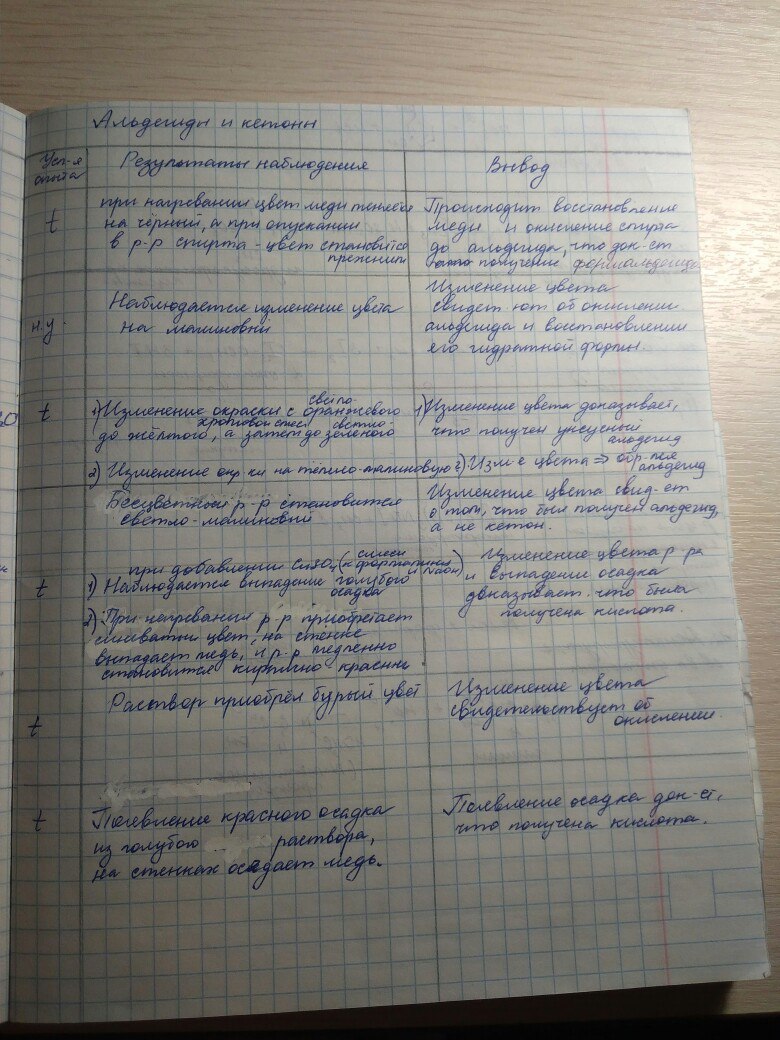 Альдегиды и кетоны
Усл-я опыта
Результаты наблюдения
Вывод
t
при нагревании цвет меди меняется
на чёрный, а при опускании
в р-р спирта - цвет становится
прежним
Происходит восстановление
меди и окисление спирта
до альдегида, что док-ст
получение формальдегида
н.у.
Наблюдается изменение цвета
на малиновый
Изменение цвета
свидет-ют об окислении
альдегида и восстановлении
его гидратной формы.
t
1) Изменение окраски с светло-оранжевого
до жёлтого, а затем до светло-зеленого
1) Изменение цвета доказывает,
что получен уксусный
альдегид
2) Изменение окр-ки на тёмно-малиновую
2) Изм-е цвета ⇒ обр-лся
альдегид
Бесцветный р-р становится
светло-малиновый
Изменение цвета свид-ет
о том, что был получен альдегид,
а не кетон.
t
при добавлении CuSO4 (к смеси формалина и NaOH)
1) Наблюдается выпадение голубого
осадка
2) При нагревании р-р приобретает
синеватый цвет, на стенке
выпадает медь, и р-р медленно
становится кирпично красным
Изменение цвета р-ра
и выпадение осадка
доказывает что была
получена кислота.
t
Раствор приобрёл бурый цвет
Изменение цвета
свидетельствует об
окислении.
t
Появление красного осадка
из голубого раствора,
на стенках оседает медь.
Появление осадка док-ет,
что получена кислота.